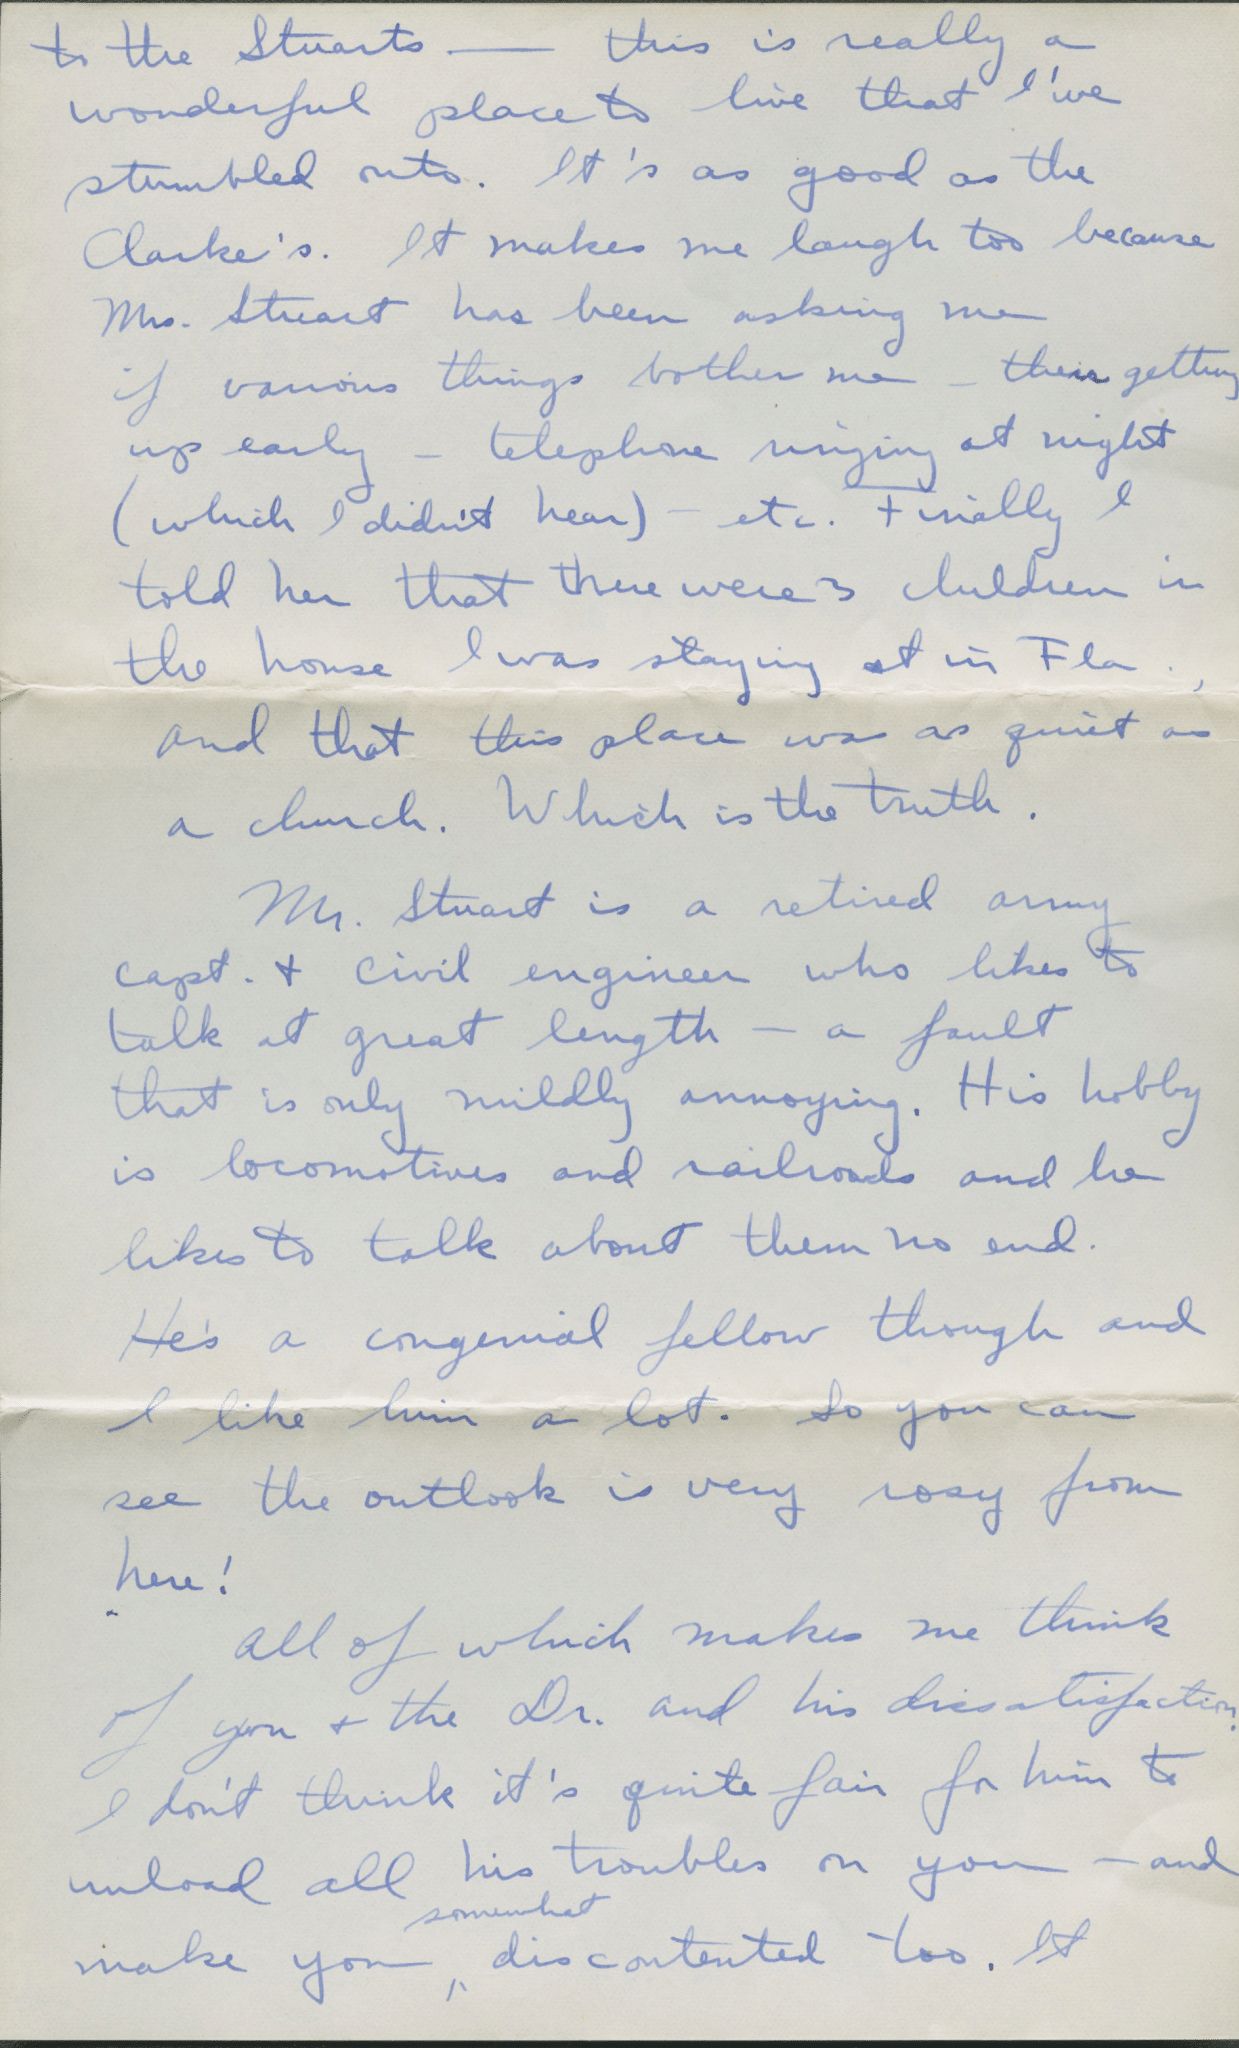 to the Stuarts — this is really a
wonderful place to live that I've
stumbled onto. It's as good as the
Clarke's. It makes me laugh too because
Mrs. Stuart has been asking me
if various things bother me – their getting
up early – telephone ringing at night
(which I didn't hear) – etc. Finally I
told her that there were 3 children in
the house I was staying at in Fla.,
and that this place was as quiet as
a church. Which is the truth.
Mr. Stuart is a retired army
capt. + civil engineer who likes to
talk at great length – a fault
that is only mildly annoying. His hobby
is locomotives and railroads and he
likes to talk about them no end.
He's a congenial fellow though and
I like him a lot. So you can
see the outlook is very rosy from
here!
All of which makes me think
of you + the Dr. and his dissatisfaction.
I don't think it's quite fair for him to
unload all his troubles on you – and
somewhat
make you ^ discontented too. It